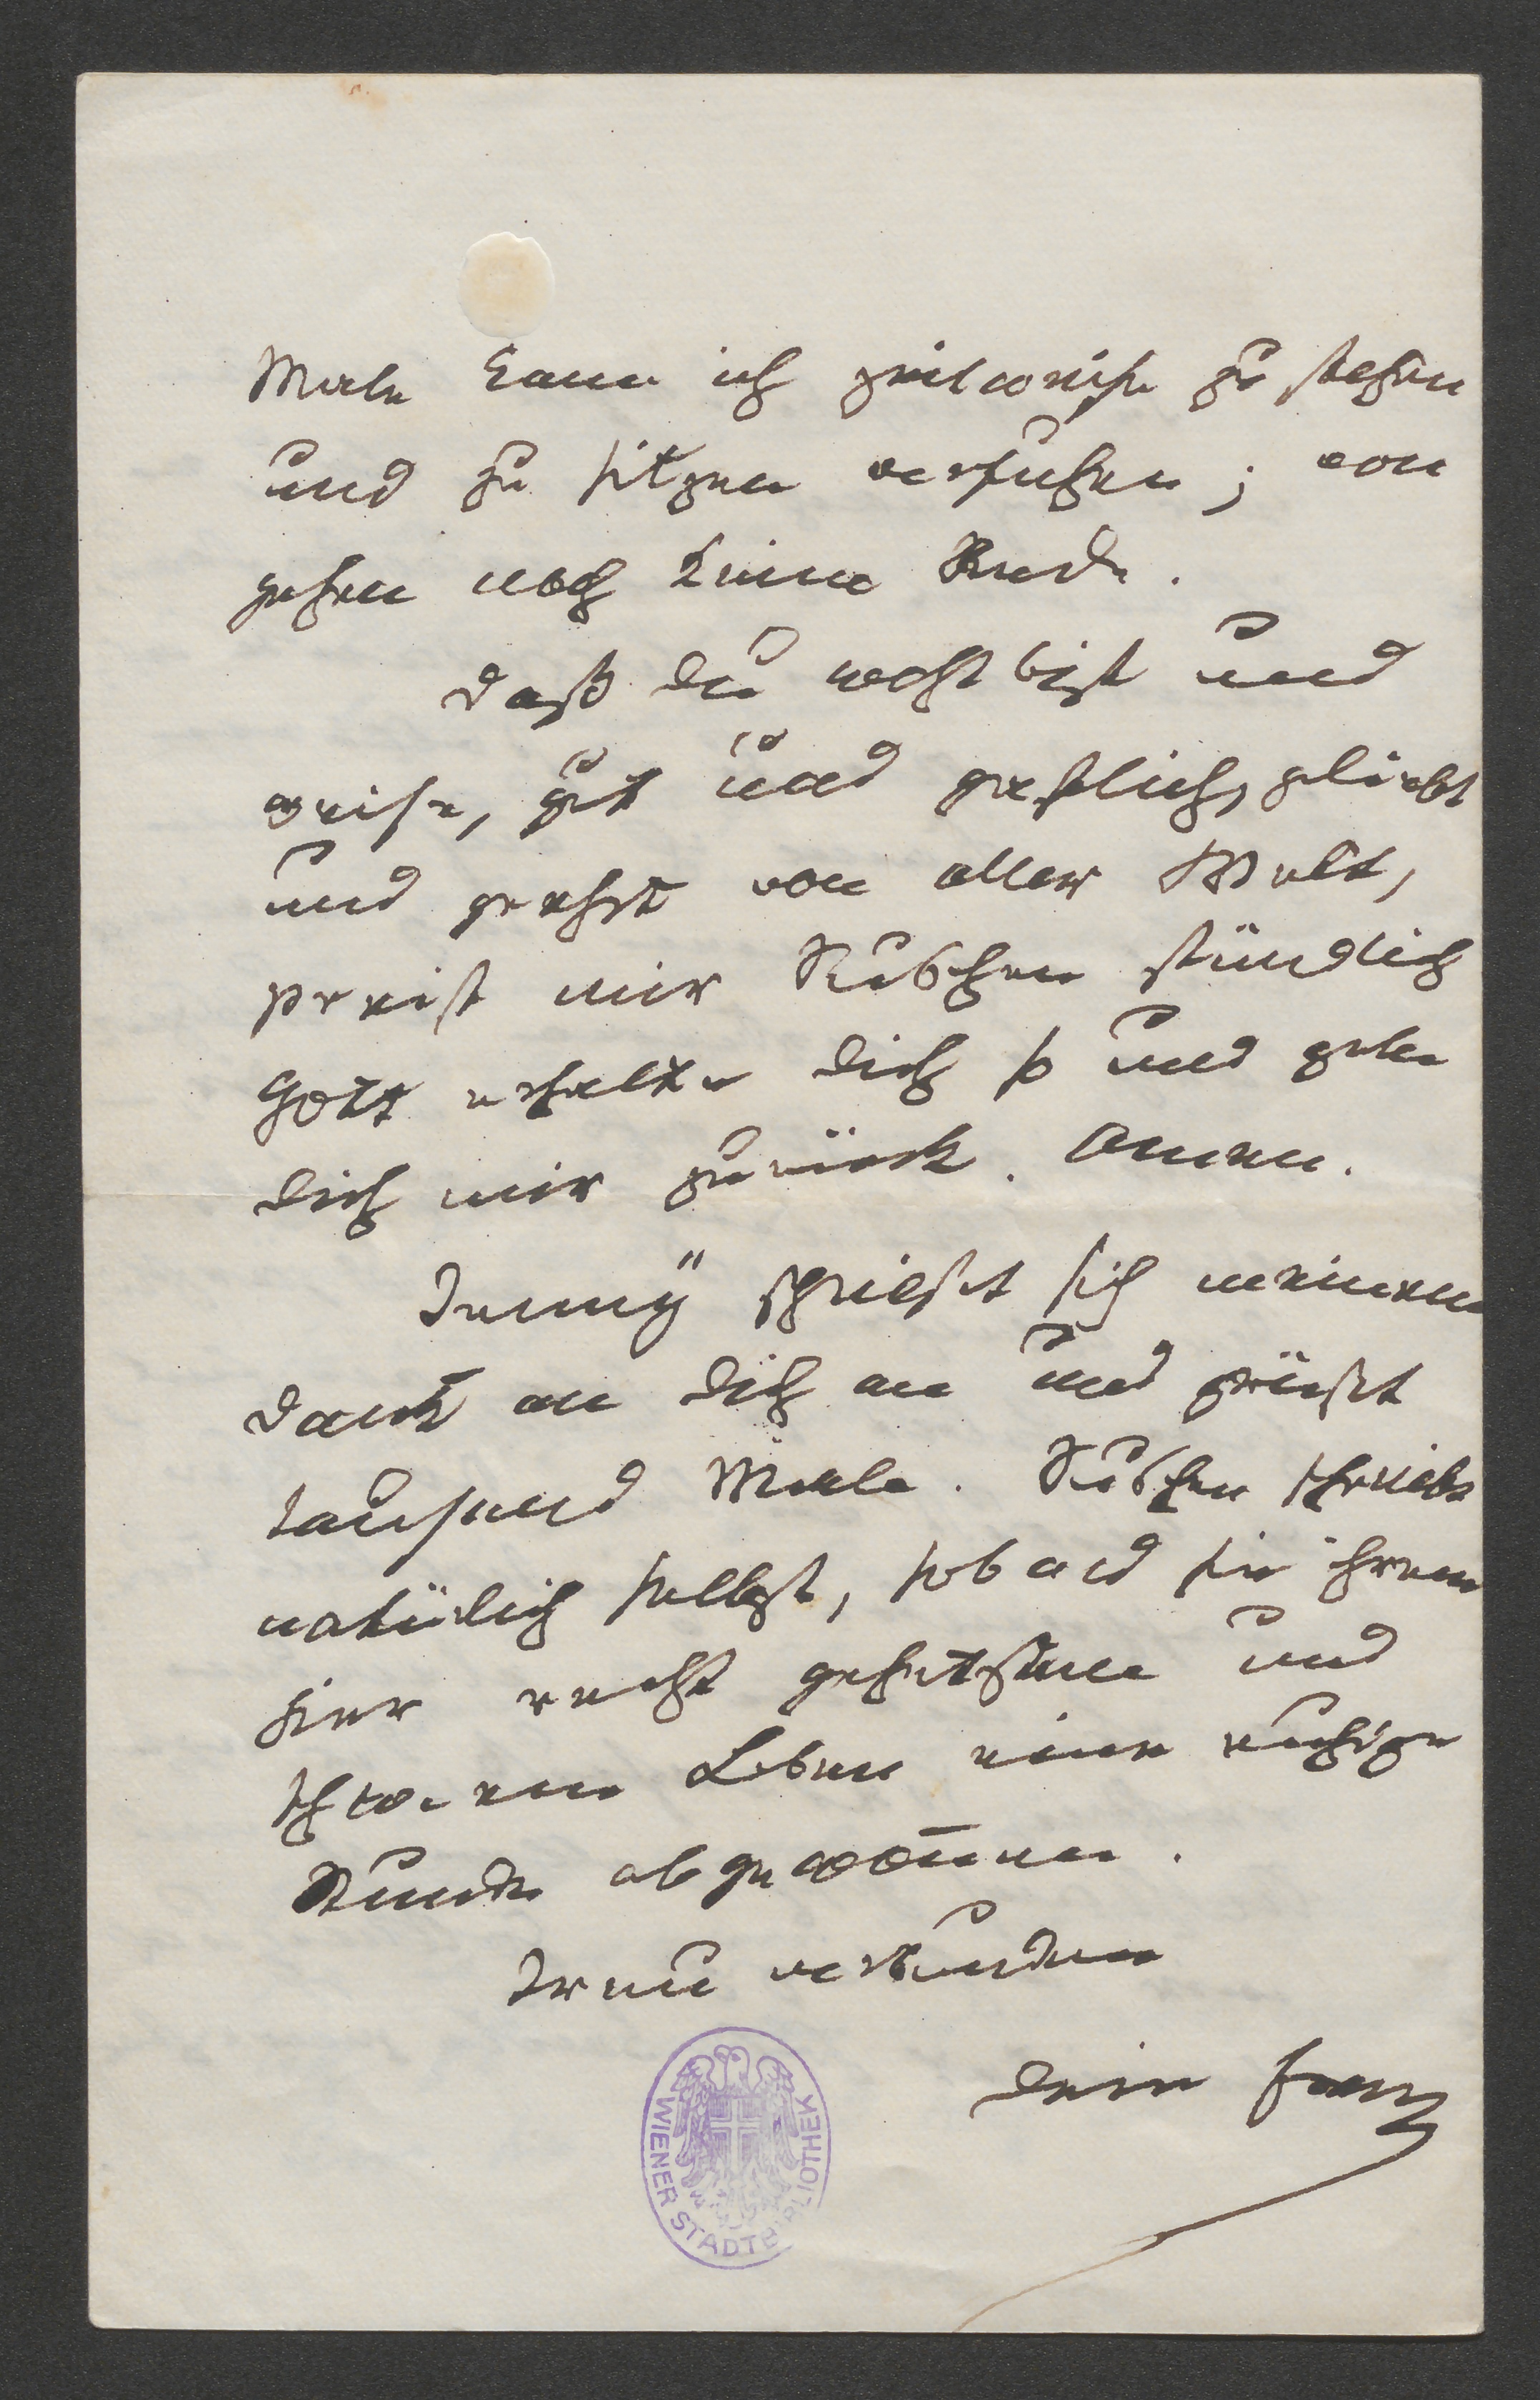 Male kann ich zeitweise zu stehen
und zu sitzen versuchen; von
gehen noch keine Rede.
Daß Du wohl bist und
weise, gut und herrlich, geliebt
und geehrt von aller Welt,
preist mir stündlich
Gott erhalte Dich so und gebe
Dich mir zurück. Amen.
Jenny schließt sich meinem
Dank an Dich an und grüßt
tausend Male. schreibt
natürlich selbst, sobald sie ihrem
hier recht gehetzten und
schweren Leben eine ruhige
Stunde abgewonnen.
Treu verbunden
Dein Franz
WIENER STADTBIBLIOTHEK